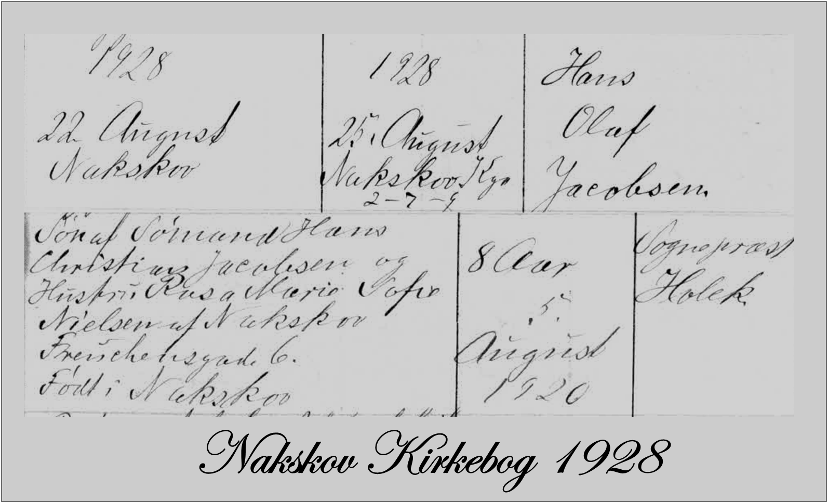 1928
22 August
Nakskov
1928
25. August
Nakskov Kgd
2-7-9
Hans
Olaf
Jacobsen.
Søn af Sømand Hans
Christian Jacobsen og
Hustru Rosa Marie Sofie
Nielsen af Nakskov
Freuchensgade 6.
Født i Nakskov
8 Aar
5.
August
1920
Sognepræst
Holck.
Nakskov Kirkebog 1928